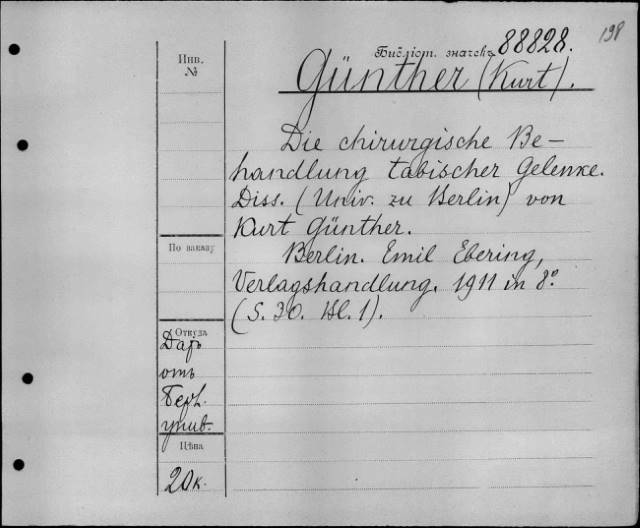 198
Библіот. значекъ 88828.
Инв.
№
Günther (Kurt).
Die chirurgische Be-
handlung tabischer Gelenke.
Diss. (Univ. zu Berlin) von
Kurt Günther.
По заказу
Berlin. Emil Ebering,
Verlagshandlung. 1911 in 8°.
(S. 30. Bl. 1).
Откуда
Даръ
отъ
Берл.
унив.
Цѣна
20к.